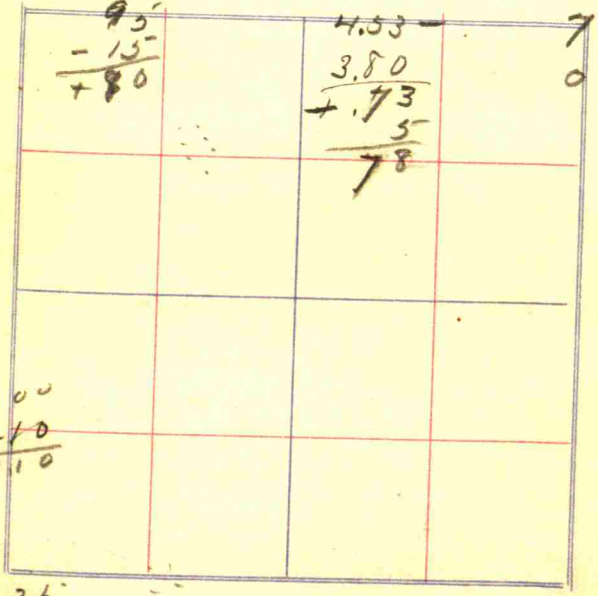 95
- 15
+ 80
4.53 -
3.80
+ .73
5
78
7
0
00
10
10